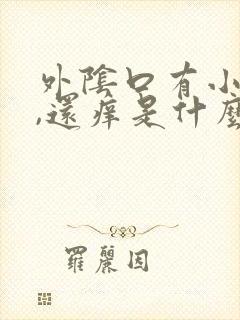 外陰口有小
,還痒是什麼
羅麗因